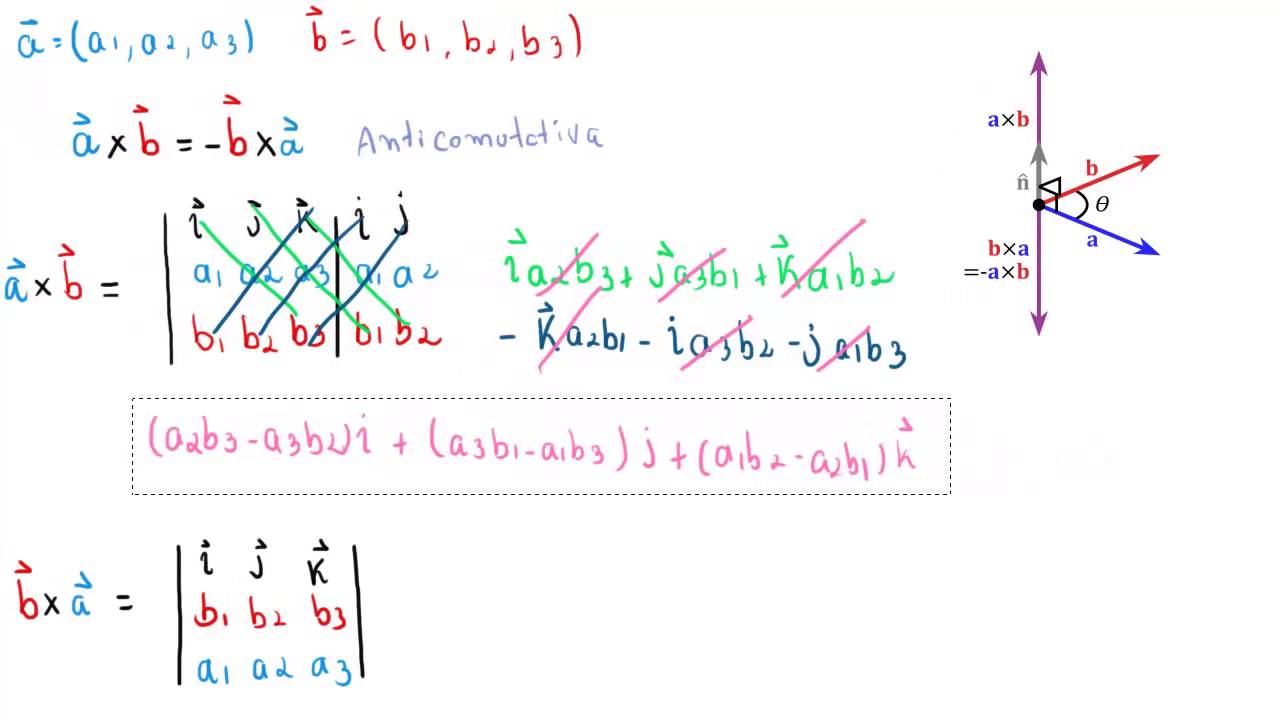 a⃗ = (a1, a2, a3) b⃗ = (b1, b2, b3)
a⃗ × b⃗ = -b⃗ × a⃗ Anticomutativa
i⃗ j⃗ k⃗ i j
a⃗ × b⃗ = a1 a2 a3 a1 a2
b1 b2 b3 b1 b2
i⃗a2b3 + j⃗a3b1 + k⃗a1b2
- k⃗a2b1 - ia3b2 - ja1b3
(a2b3 - a3b2)i + (a3b1 - a1b3)j + (a1b2 - a2b1)k⃗
i⃗ j⃗ k⃗
b⃗ × a⃗ = b1 b2 b3
a1 a2 a3
a×b
n̂
b
θ
a
b×a
=-a×b